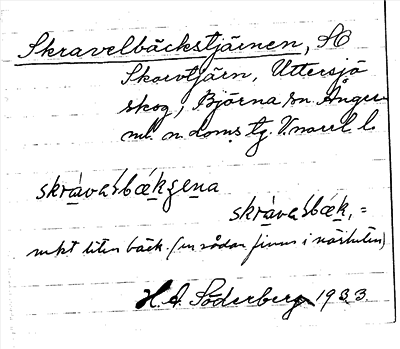 Skravelbäckstjärnen, SO
Skogstjärn, Uttersjö
skog, Björna sn. Ånger-
ml. n. doms tg. V.norrl. l.
skràvaɫbækʒena
skràvaɫbæk, =
mkt liten bäck. (en sådan finns i närheten)
H. A. Söderberg 1933.